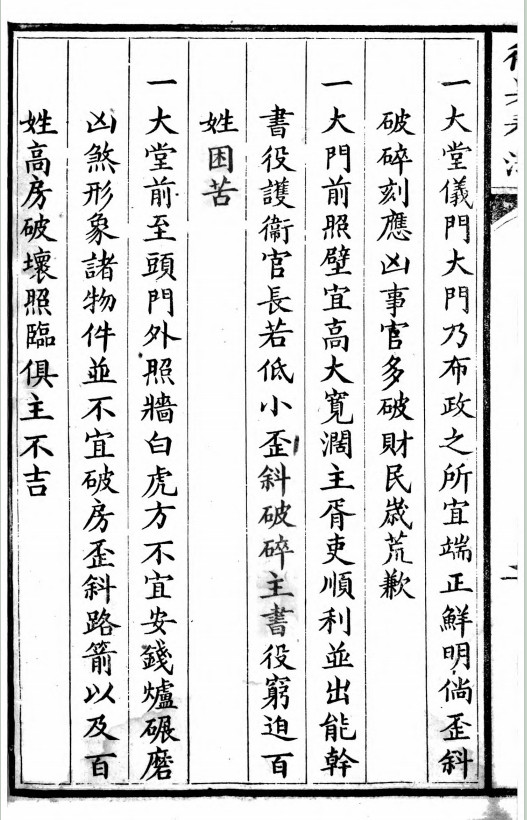 一大堂儀門大門乃布政之所宜端正鮮明倘歪斜
破碎刻應凶事官多破財民歲荒歉
一大門前照壁宜高大寬濶主胥吏順利並出能幹
書役護衞官長若低小歪斜破碎主書役窮迫百
姓困苦
一大堂前至頭門外照牆白虎方不宜安錢爐碾磨
凶煞形象諸物件並不宜破房歪斜路箭以及百
姓高房破壞照臨俱主不吉